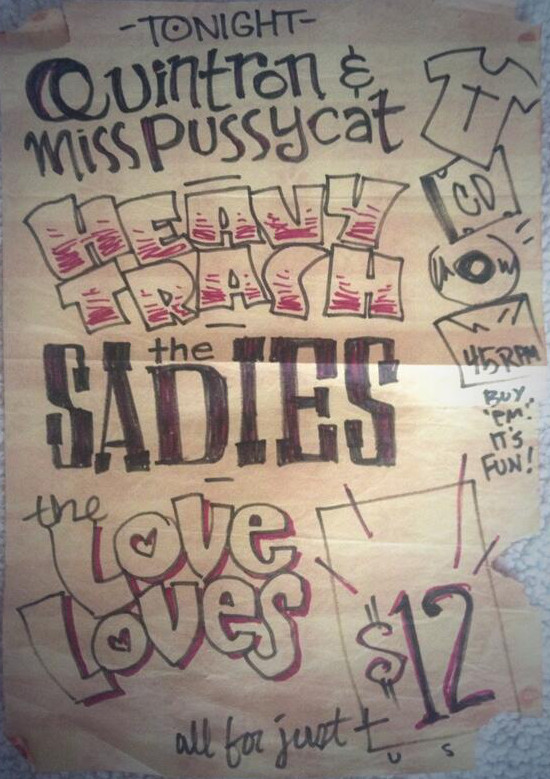 -TONIGHT-
Quintron &
Miss Pussycat
HEAVY
TRASH
the
SADIES
the
Love
Loves
all for just
$12
US
T
CD
45RPM
BUY
'EM!
IT'S
FUN!